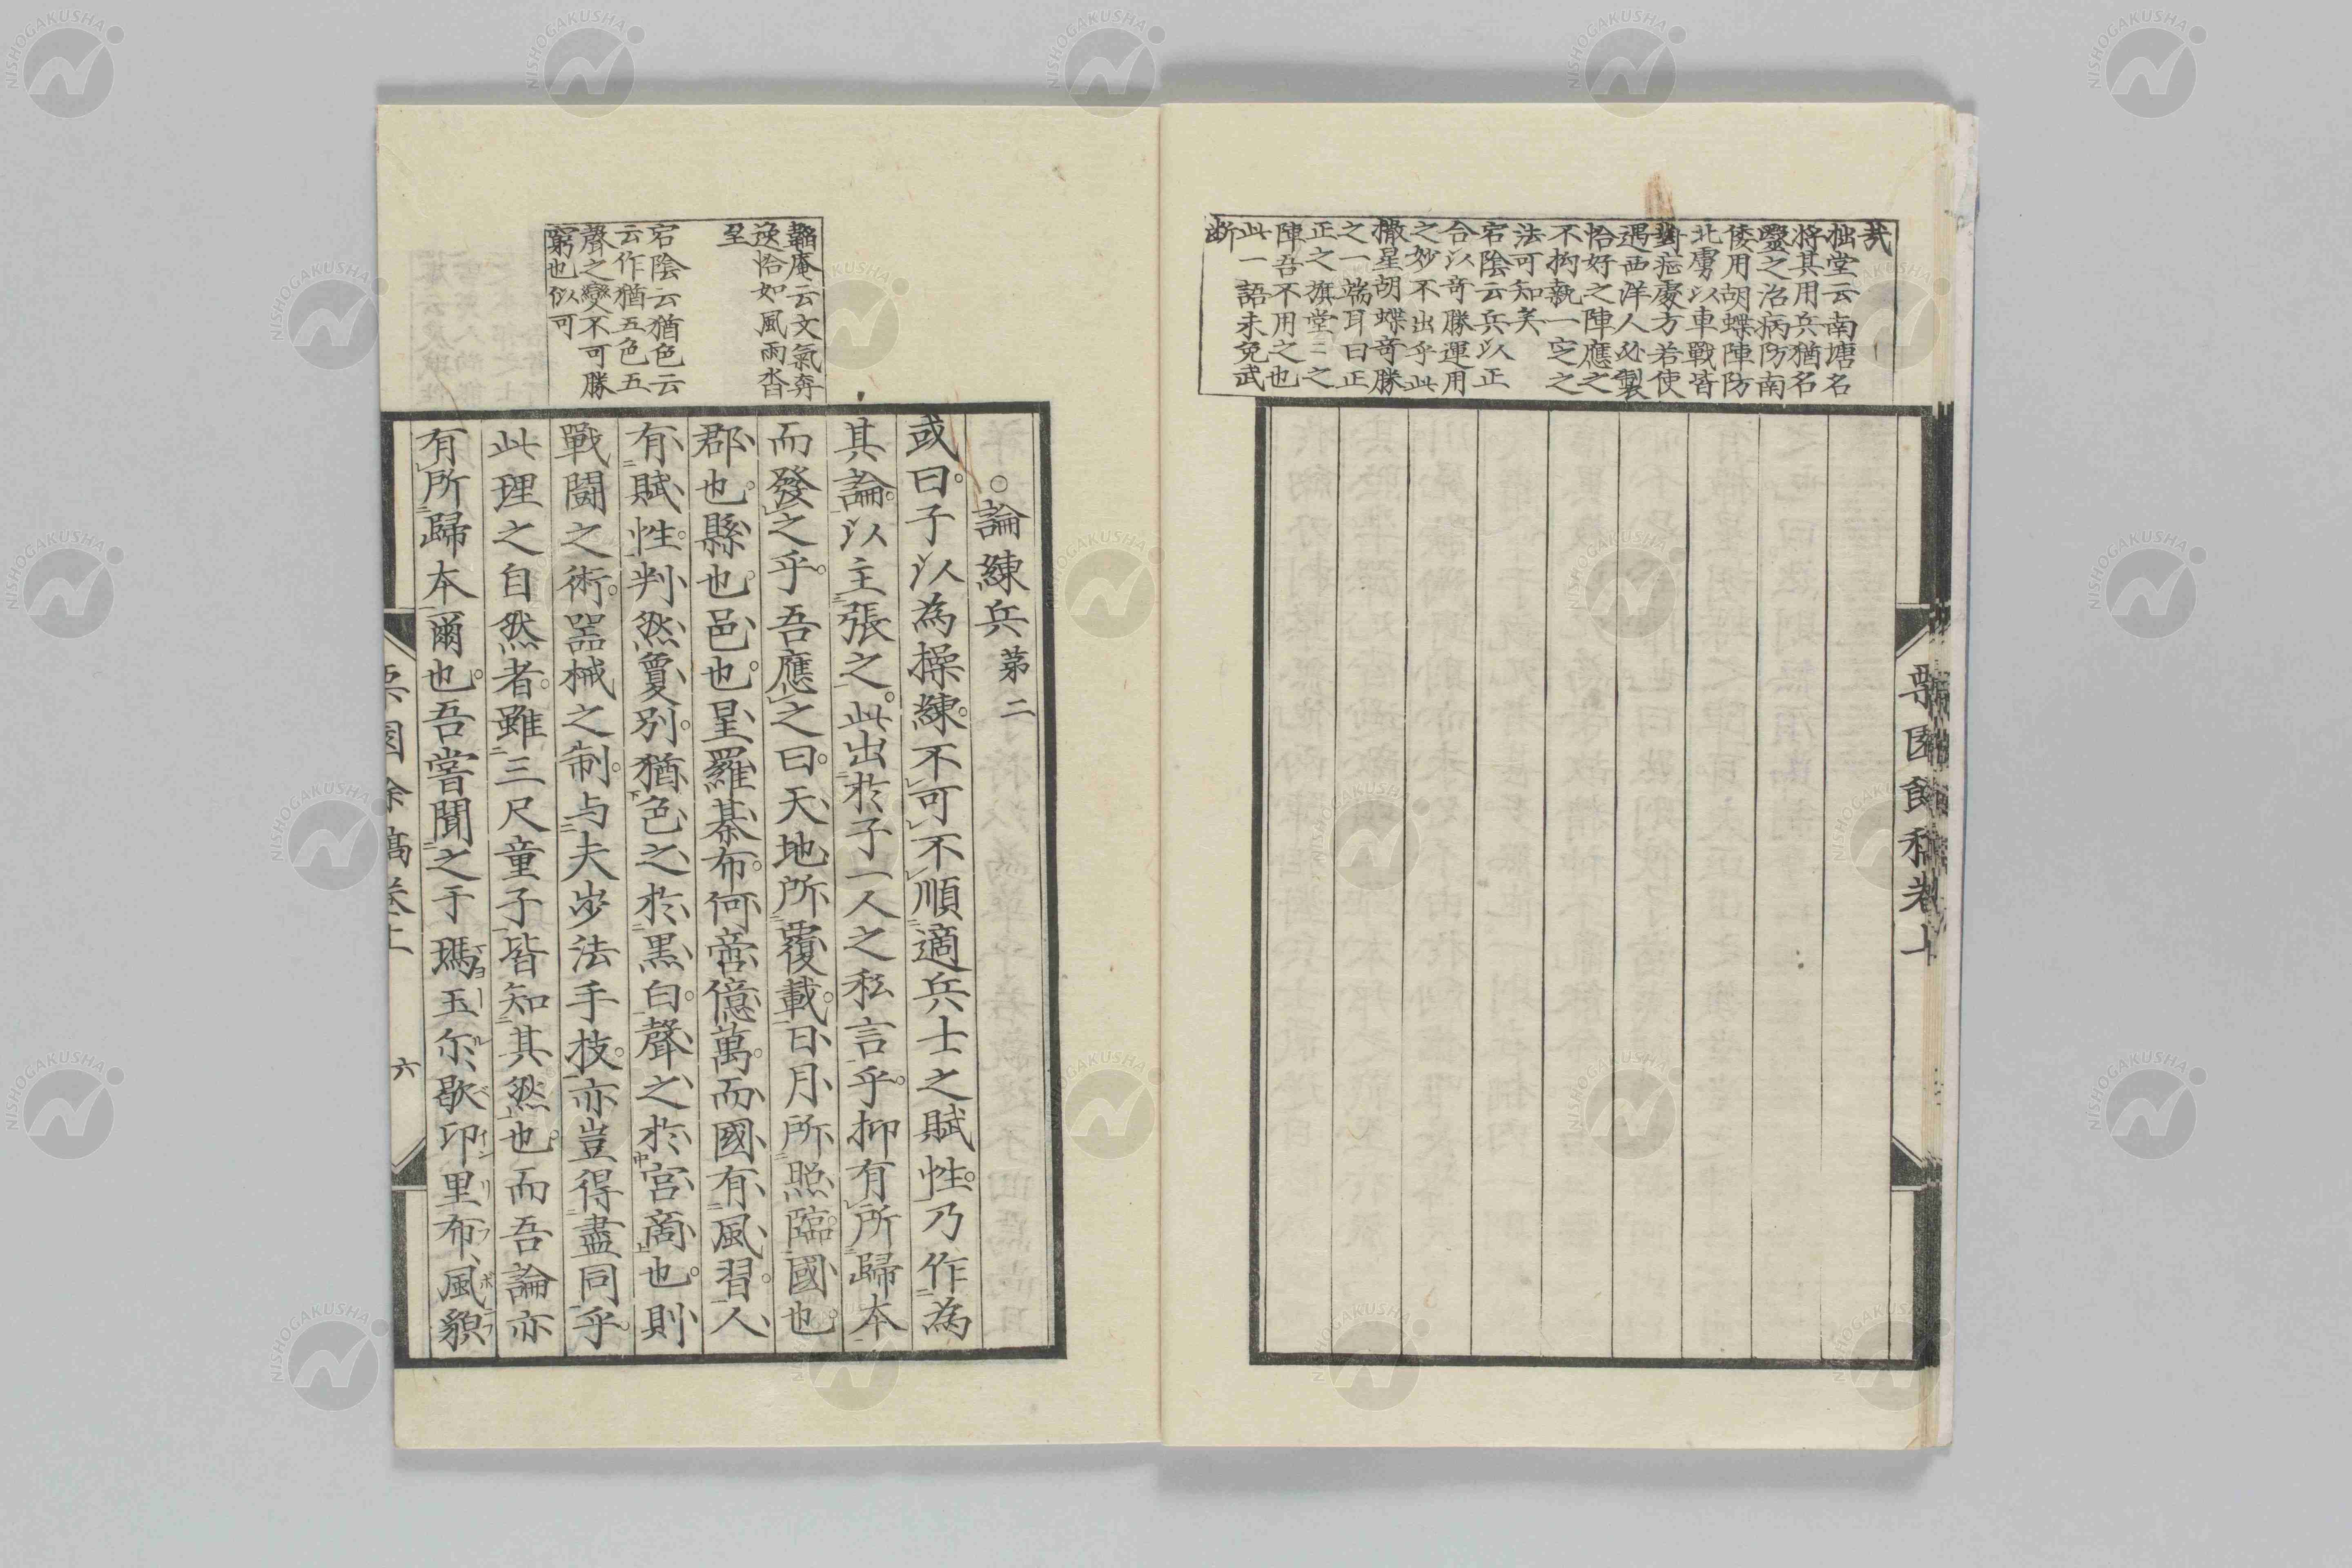 哉
拙堂云南塘名
将其用兵猶名
毉之治病防南
倭用胡蝶陣防
北虜以車戰皆
對症處方若使
遇西洋人必製
恰好之陣應之
不拘執一定之
法可知矣
宕陰云兵以正
合以奇勝運用
之妙不出乎此
撒星胡蝶奇勝
之一端耳曰正
正之旗堂〻之
陣吾不用之也
此一語未免武
断
栗園餘稿卷上
韞庵云文氣奔
逸恰如風雨沓
至
宕陰云猶色云
云作猶五色五
聲之變不可勝
窮也似可
○論練兵第二
或曰子以為操練不可不順適兵士之賦性乃作為
其論以主張之此出於子一人之私言乎抑有所歸本
而發之乎吾應之曰天地所覆載日月所照臨國也
郡也縣也邑也星羅棊布何啻億萬而國有風習人
有賦性判然敻別猶色之於黒白聲之於宮商也則
戰鬪之術器械之制与夫步法手技亦豈得盡同乎
此理之自然者雖三尺童子皆知其然也而吾論亦
有所歸本爾也吾嘗聞之于瑪玉尓歇印里布風貌
栗園餘稿卷上
六
NISHOGAKUSHA